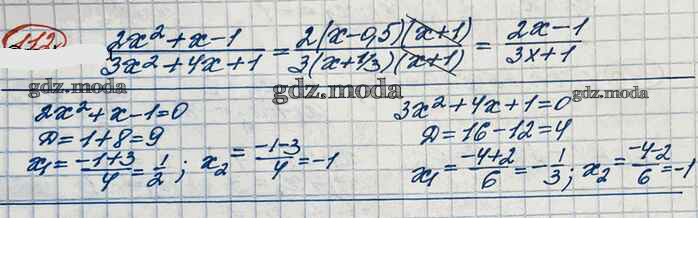 112
(2x² + x - 1)/(3x² + 4x + 1) = 2(x - 0,5)(x + 1)/3(x + 1/3)(x + 1) = (2x - 1)/(3x + 1)
gdz.moda
gdz.moda
gdz.moda
2x² + x - 1 = 0
D = 1 + 8 = 9
x₁ = (-1+3)/4 = 1/2 ; x₂ = (-1-3)/4 = -1
3x² + 4x + 1 = 0
D = 16 - 12 = 4
x₁ = (-4+2)/6 = -1/3 ; x₂ = (-4-2)/6 = -1